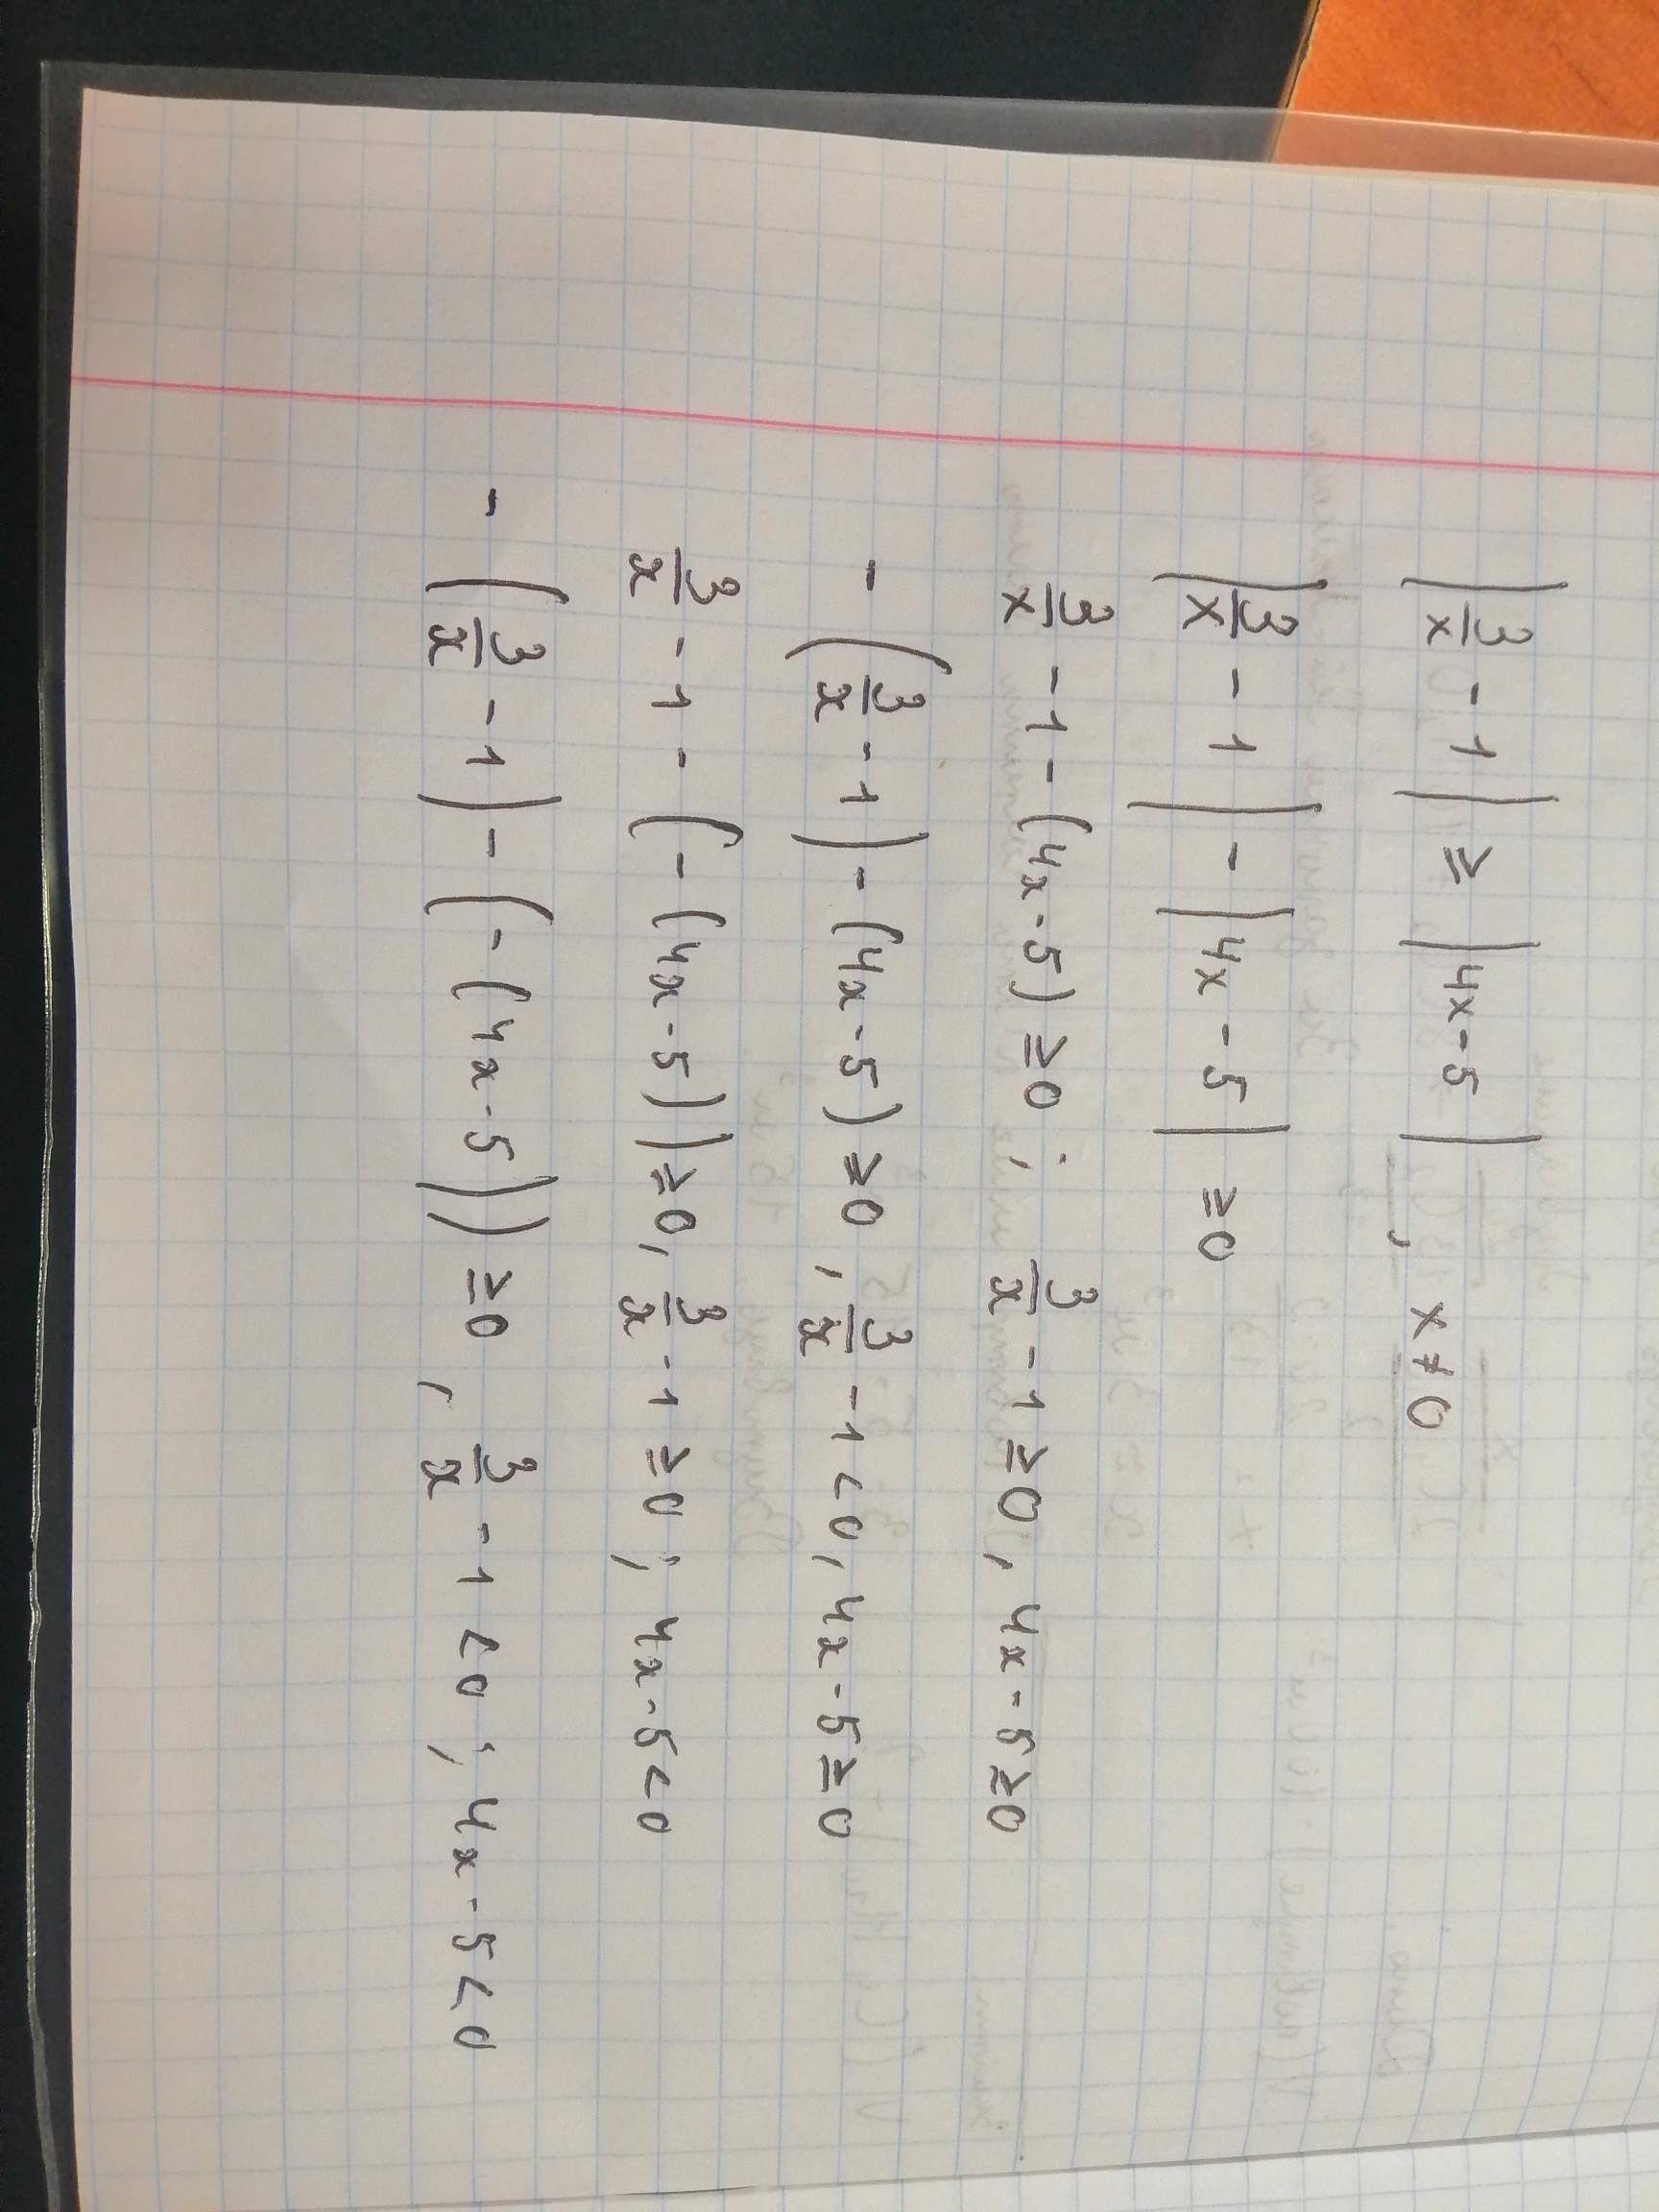 |3/x - 1| ≥ |4x-5| , x ≠ 0
|3/x - 1| - |4x - 5| ≥ 0
3/x - 1 - (4x - 5) ≥ 0 ; 3/x - 1 ≥ 0 , 4x - 5 ≥ 0
- (3/x - 1) - (4x - 5) ≥ 0 , 3/x - 1 < 0 , 4x - 5 ≥ 0
3/x - 1 - (- (4x - 5)) ≥ 0 , 3/x - 1 ≥ 0 ; 4x - 5 < 0
- (3/x - 1) - (- (4x - 5)) ≥ 0 , 3/x - 1 < 0 ; 4x - 5 < 0